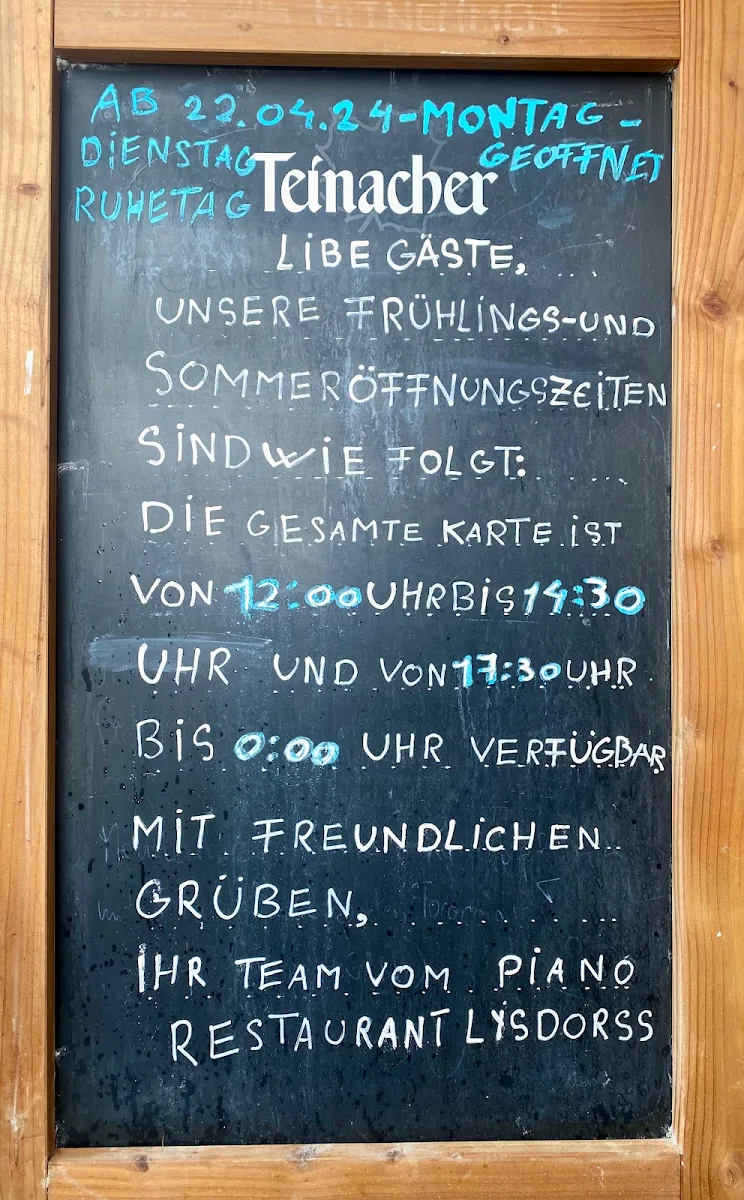 AB 22.04.24-MONTAG-
GEOFFNET
DIENSTAG
RUHETAG
Teinacher
LIBE GÄSTE,
UNSERE FRÜHLINGS-UND
SOMMERÖFFNUNGSZEITEN
SIND WIE FOLGT:
DIE GESAMTE KARTE IST
VON 12:00 UHR BIS 14:30
UHR UND VON 17:30 UHR
BIS 0:00 UHR VERFÜGBAR
MIT FREUNDLICHEN
GRÜBEN,
IHR TEAM VOM PIANO
RESTAURANT LYSDORSS